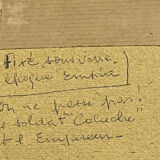 fixé sous verre
époque Empire
On ne passe pas!
le soldat Colucke
et l'Empereur